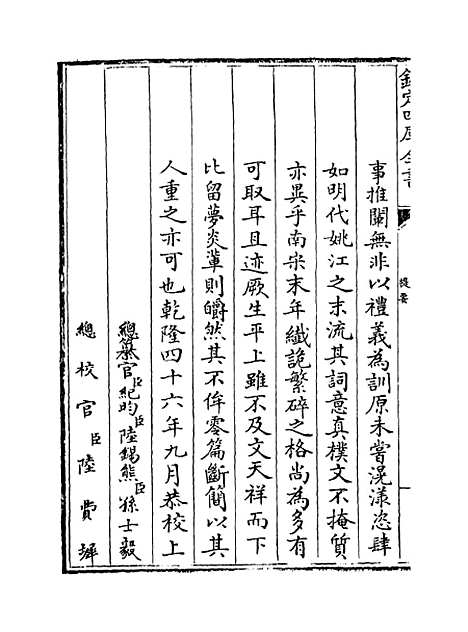 欽定四庫全書
提要
事推闡無非以禮義為訓原未嘗滉漾恣肆
如明代姚江之末流其詞意真樸文不掩質
亦異乎南宋末年纖詭繁碎之格尚為多有
可取耳且迹厥生平上雖不及文天祥而下
比留夢炎輩則皭然其不侔零篇斷簡以其
人重之亦可也乾隆四十六年九月恭校上
總纂官臣紀昀臣陸錫熊臣孫士毅
總校官臣陸費墀